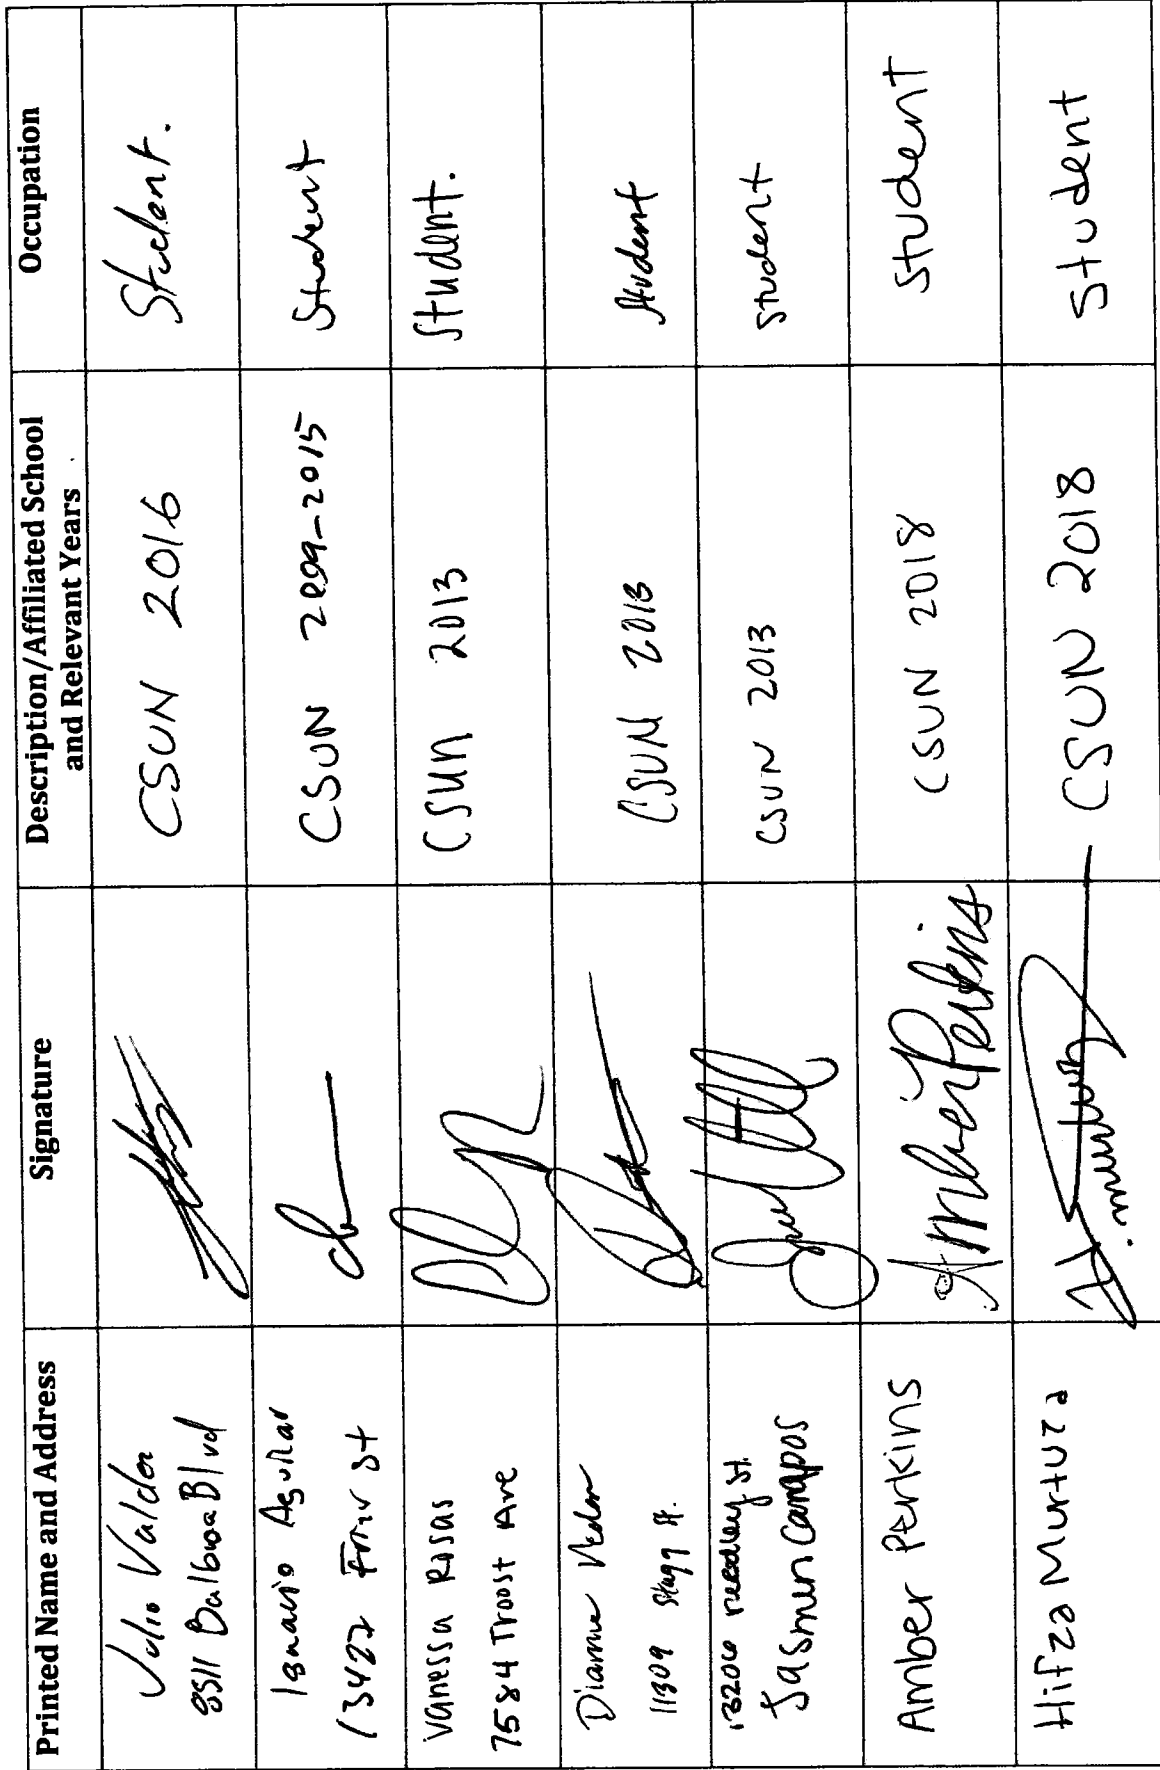 Printed Name and Address
Signature
Description/Affiliated School
and Relevant Years
Occupation
Julio Valdez
8511 Balboa Blvd
CSUN 2016
Student.
Ignacio Aguilar
13422 St
CSUN 2009-2015
Student
Vanessa Rosas
7584 Troost Ave
CSUN 2013
Student.
Dianne
11309 Stagg St.
CSUN 2013
Student
13206 reedley st.
Jasmin Campos
CSUN 2013
Student
Amber Perkins
Amber Perkins
CSUN 2018
Student
Hifza Murtuza
H. Murtuza
CSUN 2018
Student